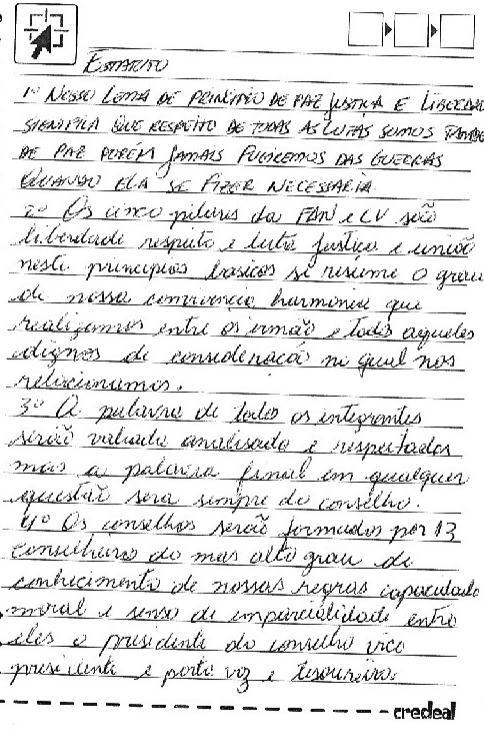 Estatuto
1º Nosso Lema de princípio de paz justiça e Liberdade
significa que respeito de todas as lutas somos
de paz porém jamais fugiremos das guerras
Quando ela se fizer necessaria
2º Os cinco pilares da FAN e CV são
liberdade respeito e luta justiça e união
neste principios basicos se resume o grau
de nossa convivencia harmonica que
realizamos entre os irmão e todos aqueles
dignos de consideração no qual nos
relacionamos.
3º A palavra de todos os integrantes
serão valiada analisada e respeitadas
mas a palavra final em qualquer
questão sera sempre do conselho.
4º Os conselhos serão formados por 13
conselheiro do mas alto grau de
conhecimento de nossas regras capacidade
moral e senso de imparcialidade entre
eles o presidente do conselho vice
presidente e porta voz e tesoureiro.
credeal